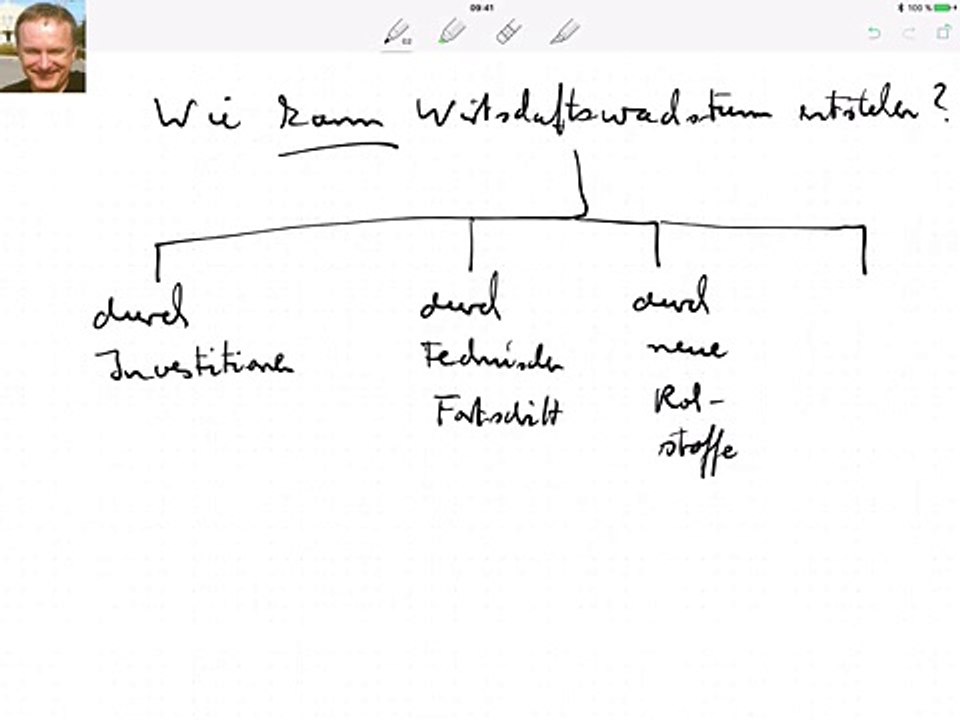 09:41
100 %
Wie kann Wirtschaftswachstum entstehen?
durch
Investitionen
durch
Technischen
Fortschritt
durch
neue
Roh-
stoffe